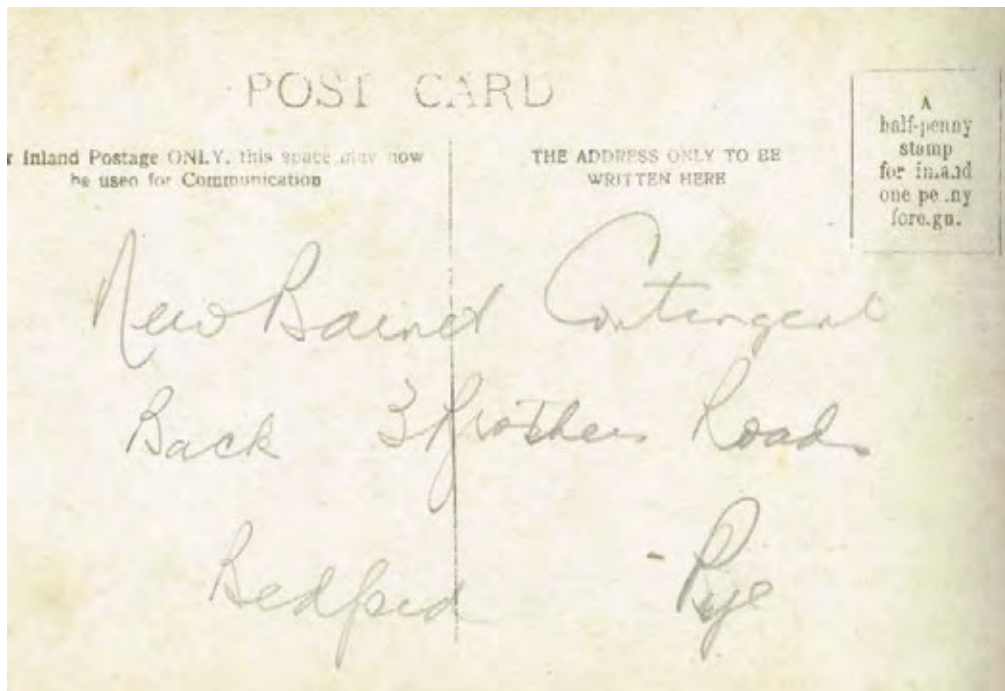 POST CARD
r Inland Postage ONLY, this space may now
be used for Communication
THE ADDRESS ONLY TO BE
WRITTEN HERE
A
half-penny
stamp
for inland
one penny
foreign.
New Barnet Contingent
Back 3 Brothers Road
Bedford Pye